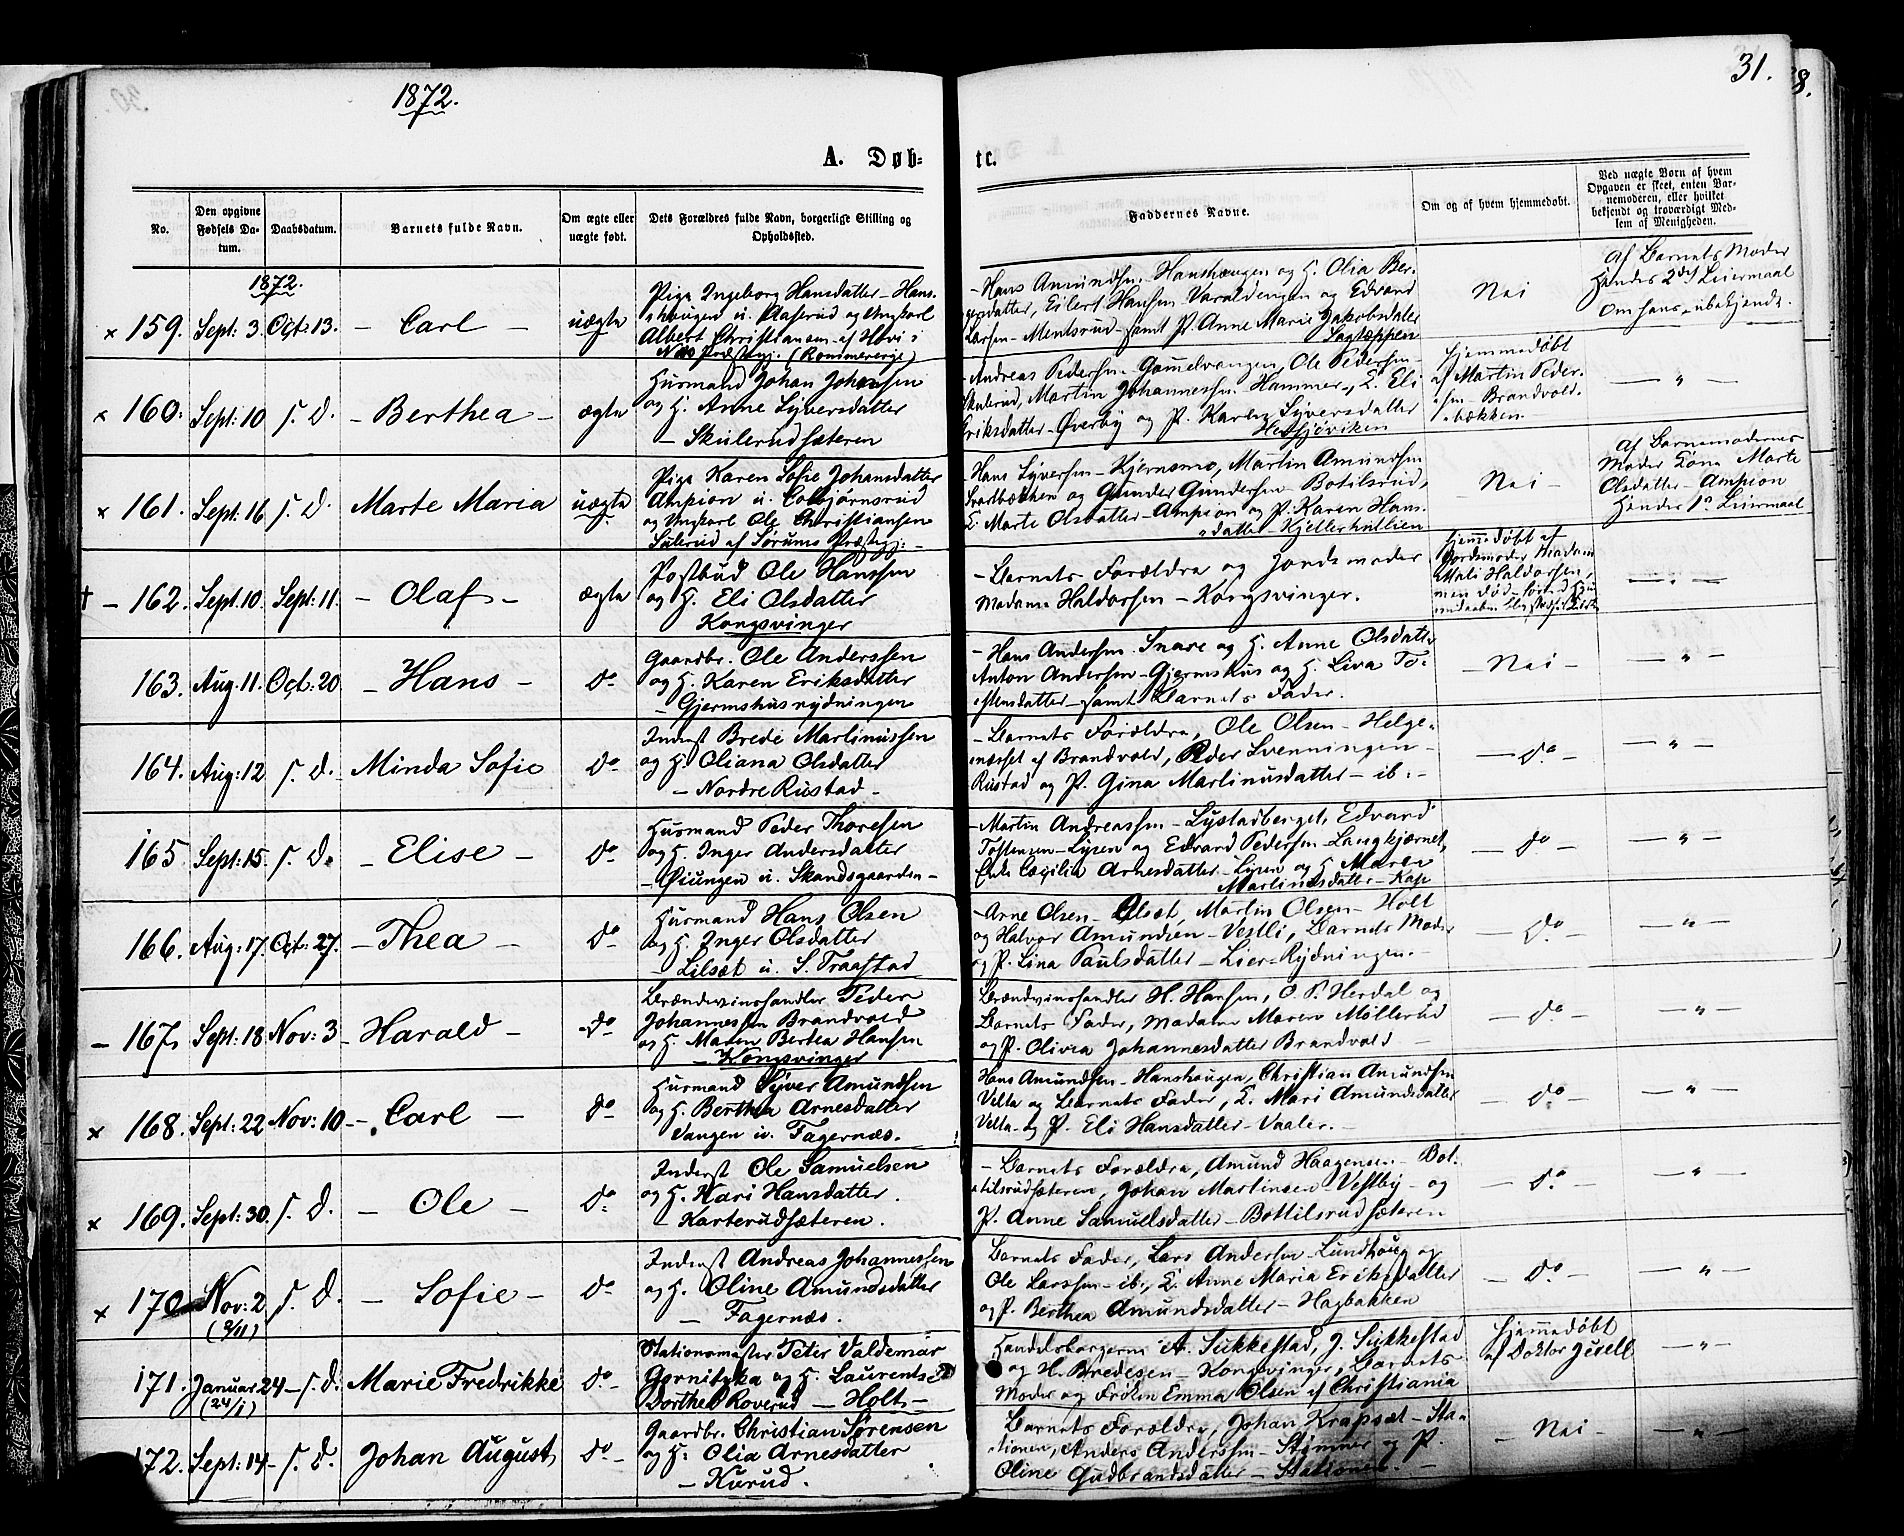 1872.
31.
8.
A. Døb-
te.
No.
Den opgivne Fødsels Da-tum.
Daabsdatum.
Barnets fulde Navn.
Om ægte eller uægte født.
Dets Forældres fulde Navn, borgerlige Stilling og Opholdssted.
Faddernes Navne.
Om og af hvem hjemmedøbt.
Ved uægte Børn af hvem Opgaven er skeet, enten Bar-nemoderen, eller hvilket bekjendt og troværdigt Med-lem af Menigheden.
1872.
× 159. Sept: 3. Oct: 13. - Carl - uægte
Pige Ingeborg Hansdatter - Hans-
haugen u. Aaserud og Ungkarl
Albert Christiansen af Hovi i
Næs Præstegj. (Rommerrige)
- Hans Amundsen - Hanshaugen og H. Olia Ber-
datter, Eilert Hansen - Varaldengen og Edvard
Larsen - Mentsrud - samt P. Anne Marie Jakobsdatter
Sagtæppen
Nei
Af Barnets Moder
Hendes 2det Leiermaal
Om hans - ubekjendt.
× 160. Sept: 10 s. D. - Berthea - ægte
Husmand Johan Johansen
og H. Anne Syversdatter
- Skulerudsæteren
- Andreas Pedersen - Gamelvangen, Ole Pedersen -
Skulerud, Martin Johannessen - Hammer, E. Eli
Eriksdatter - Øverby og P. Karen Syversdatter
Hersjøviken
Hjemmedøbt
af Martin Peder-
sen - Brandvold-
bækken
- " -
× 161. Sept: 16 s. D. Marte Maria uægte
Pige Karen Sofie Johansdatter
Ampion u. Cobjørnsrud
og Ungkarl Ole Christiansen
Sulerud af Sørums Præstegj: -
Hans Syversen - Kjernsmo, Martin Amundsen
Svartbækken og Gunder Gundersen - Botilsrud,
E. Marte Olsdatter - Ampion og P. Karen Hans-
datter - Kjellerhutlien
- Nei -
Af Barnemoderens
Moder Kone Marte
Olsdatter - Ampion
Hendes 1e Leiermaal
† - 162. Sept: 10 Sept: 11. - Olaf - ægte
Postbud Ole Hanssen
og H. Eli Olsdatter
Kongsvinger
- Barnets Forældre og Jordemoder
Madame Haldorsen - Kongsvinger.
Hjemmedøbt af
Jordemoder Madam
Mali Haldorsen,
men død
- " -
163. Aug: 11. Oct: 20. - Hans - do
Gaardbr. Ole Anderssen
og H. Karen Eriksdatter
- Gjermshusrydningen
- Hans Andersen - Snare og H. Anne Olsdatter
Anton Andersen - Gjermshus og H. Lisa To-
stensdatter - samt Barnets Fader.
- Nei -
- " -
164. Aug: 12 s. D. - Minda Sofie do
Inderst Brede Martinussen
og H. Oliana Olsdatter
- Nordre Rustad -
- Barnets Forældre, Ole Olsen - Helge-
næsset af Brandvold, Peder Svenningen -
Rustad og P. Gina Martinusdatter - ib: -
- do -
- " -
165 Sept: 15. s. D. - Elise - do
Husmand Peder Thoresen
og H. Inger Andersdatter
- Øiungen u. Skandsgaarden -
- Martin Andreassen - Lystadberget, Edvard
Tostensen - Lyren og Edvard Pedersen - Langkjærnet,
Enke Cæcilia Arnesdatter - Lyren og H. Maren
Martinusdatter - Kap
- do -
- " -
166. Aug: 17. Oct: 27. - Thea - do
Husmand Hans Olsen
og H. Inger Olsdatter
- Lilsæt u. S. Traastad
- Arne Olsen - Olsæt, Martin Olsen - Holt
og Halvor Amundsen - Vestli, Barnets Moder
og P. Lina Paulsdatter - Lier-Rydningen. -
- do -
- " -
- 167. Sept: 18 Nov: 3 - Harald - do
Brændevinshandler Peder
Johannessen Brandvold
og H. Maren Berthea Hansen
- Kongsvinger
Brændevinshandler H. Hansen, O. P. Herdal og
Barnets Fader, Madame Maren Møllerud
og P. Olivea Johannesdatter Brandvold -
- do -
- " -
× 168. Sept: 22 Nov: 10 - Carl - do
Husmand Syver Amundsen
og H. Berthea Arnesdatter
Vangen u. Fagernæs.
Hans Amundsen - Hanshaugen, Christian Amundsen
Velta og Barnets Fader, E. Mari Amundsdatter
Velta og P. Eli Hansdatter - Vaaler. -
- do -
- " -
× 169. Sept: 30. s. D. - Ole - do
Inderst Ole Samuelsen
og H. Kari Hansdatter.
- Karterudsæteren.
- Barnets Forældre, Amund Haagensen - Bot-
tilsrudsæteren, Johan Martinsen - Vestby - og
P. Anne Samuelsdatter - Bottilsrudsæteren
- do -
- " -
× 170 Nov: 2 s. D. - Sofie - do
(2/11)
Inderst Andreas Johannessen
og H. Oline Amundsdatter
- Fagernæs.
Barnets Fader, Lars Andersen - Lundhaug og
Ole Larssen - ib:, E. Anne Maria Eriksdatter
og P. Berthea Amundsdatter - Hagbakken
- do -
- " -
171. Januar 24 - s. D. Marie Fredrikke do -
(24/1)
Stationsmester Peter Valdemar
Gornitzka og H. Laurentse
Dorthea Roverud - Holt -
Handelsborgerne A. Sukkestad, J. Sukkestad
og H. Bredesen - Kongsvinger, Barnets
Moder og Frøken Emma Olsen af Christiania
Hjemmedøbt
af Doktor
- " -
172. Sept: 14 - s. D. Johan August do -
Gaardbr. Christian Sørensen
og H. Olia Arnesdatter
- Kurud.
Barnets Forældre, Johan Krapsæt - Sta-
tionen, Anders Andersen - Stømner og P.
Oline Gudbrandsdatter - Stationen. -
- Nei -
- " -